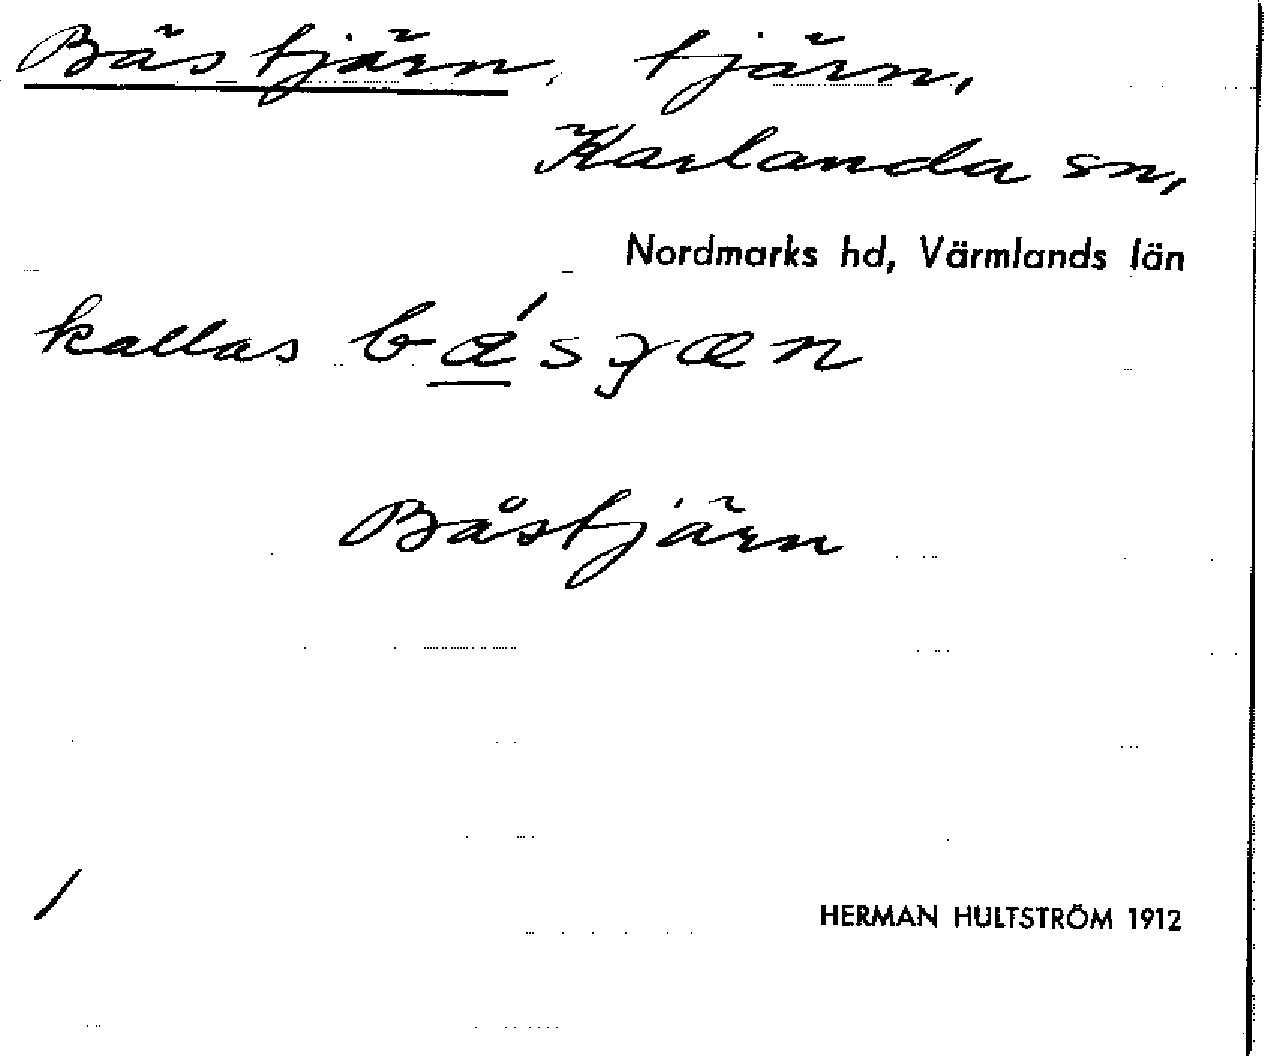 Bästjärn, tjärn,
Karlanda sn,
Nordmarks hd, Värmlands län
kallas
Båstjärn
/
HERMAN HULTSTRÖM 1912